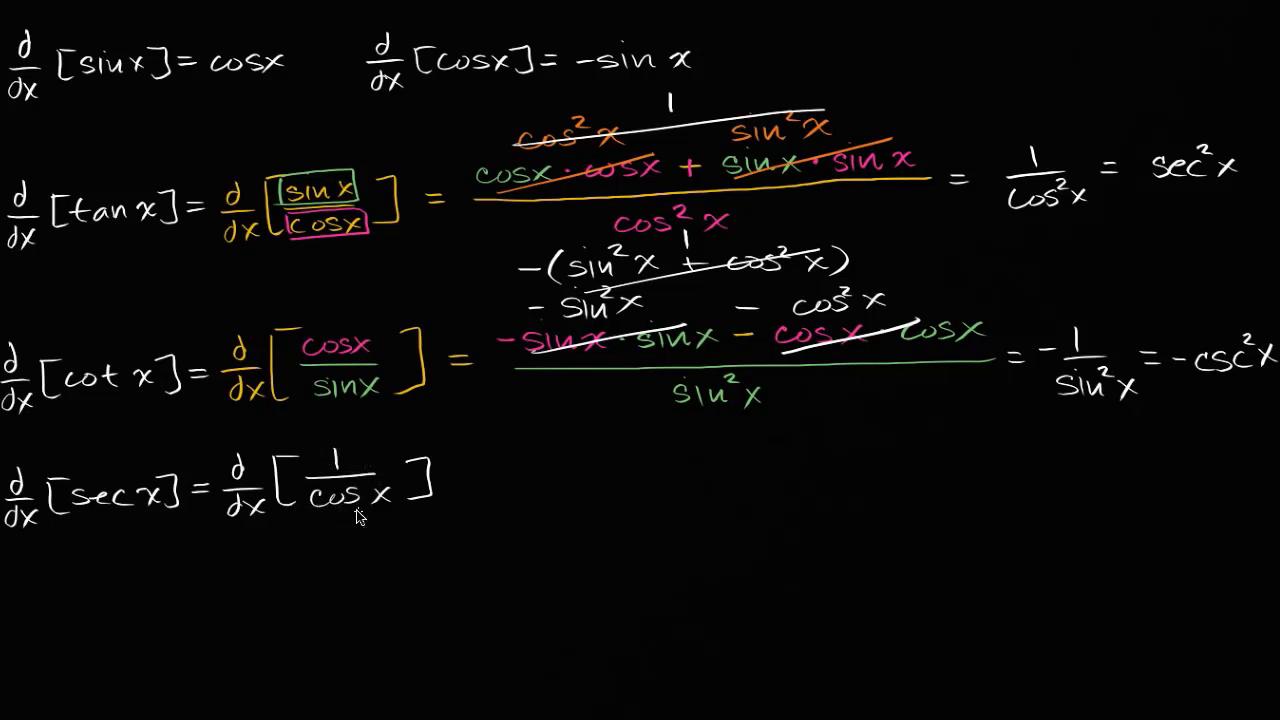 d/dx [sin x] = cos x    d/dx [cos x] = -sin x
1
cos²x    sin²x
d/dx [tan x] = d/dx [sin x / cos x] = (cos x · cos x + sin x · sin x) / cos²x = 1 / cos²x = sec²x
1
-(sin²x + cos²x)
- sin²x - cos²x
d/dx [cot x] = d/dx [cos x / sin x] = (-sin x · sin x - cos x · cos x) / sin²x = -1 / sin²x = -csc²x
d/dx [sec x] = d/dx [1 / cos x]